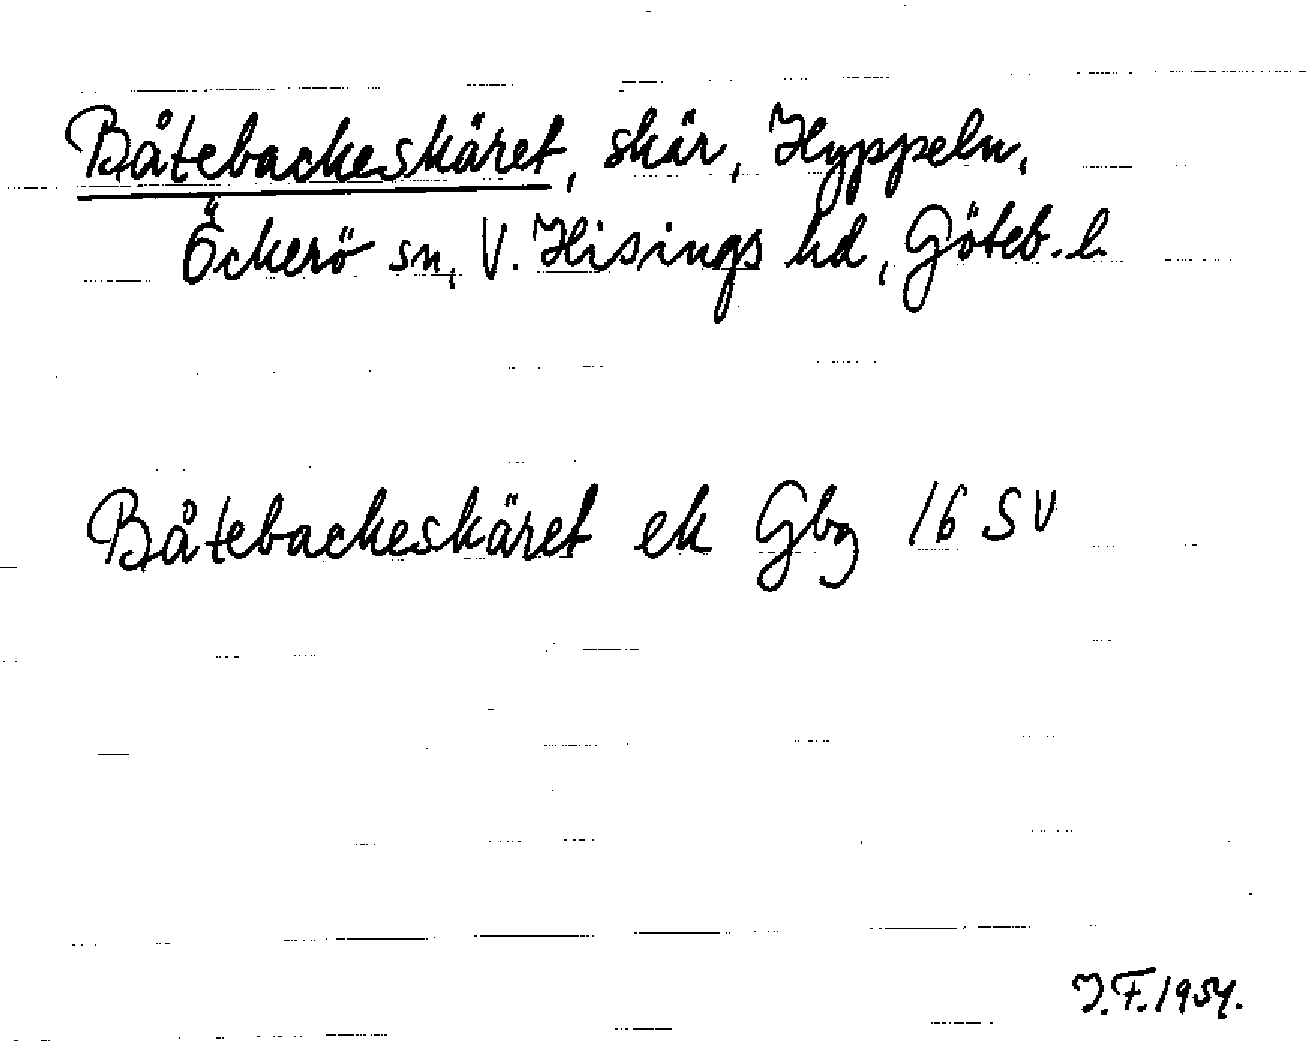 Båtebackeskäret, skär, Hyppeln,
Öckerö sn, V. Hisings hd, Göteb. l.
Båtebackeskäret ek Gbg 16 SV
J.F. 1954.